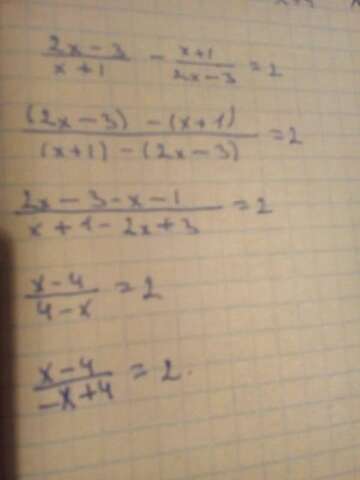 (2x-3)/(x+1) - (x+1)/(2x-3) = 2
((2x-3)-(x+1))/((x+1)-(2x-3)) = 2
(2x-3-x-1)/(x+1-2x+3) = 2
(x-4)/(4-x) = 2
(x-4)/(-x+4) = 2.